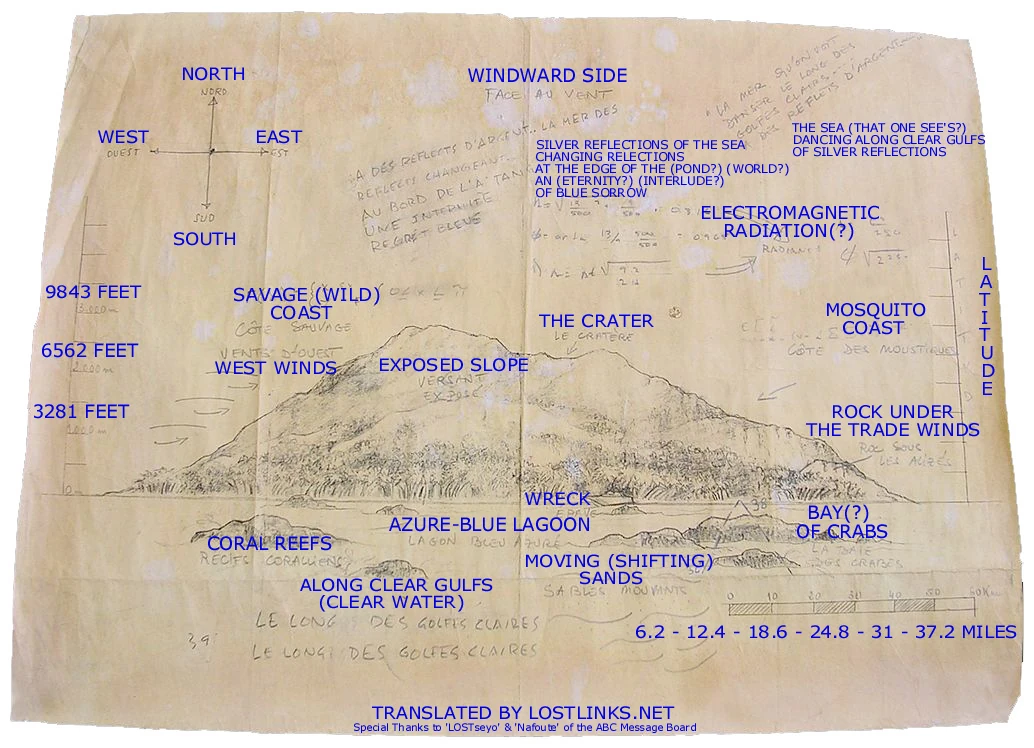 NORTH
NORD
WEST
OUEST
EAST
EST
SUD
SOUTH
WINDWARD SIDE
FACE AU VENT
A DES REFLECTS D'ARGENT.. LA MER DES
REFLECTS CHANGEANT...
AU BORD DE L'A
UNE
REGRET BLEUE
"LA MER QU'ON VOIT
DANSER LE LONG DES
GOLFES CLAIRS...
DES REFLETS D'ARGENT
SILVER REFLECTIONS OF THE SEA
CHANGING RELECTIONS
AT THE EDGE OF THE (POND?) (WORLD?)
AN (ETERNITY?) (INTERLUDE?)
OF BLUE SORROW
THE SEA (THAT ONE SEE'S?)
DANCING ALONG CLEAR GULFS
OF SILVER REFLECTIONS
ELECTROMAGNETIC
RADIATION(?)
9843 FEET
3.000m
6562 FEET
2.000m
3281 FEET
1.000m
0m
SAVAGE (WILD)
COAST
CÔTE SAUVAGE
VENTS D'OUEST
WEST WINDS
EXPOSED SLOPE
VERSANT
EXPOSÉ
THE CRATER
LE CRATÈRE
MOSQUITO
COAST
CÔTE DES MOUSTIQUES
LATITUDE
ROCK UNDER
THE TRADE WINDS
ROC SOUS
LES ALIZÉS
WRECK
EPAVE
AZURE-BLUE LAGOON
LAGON BLEU AZURÉ
CORAL REEFS
RÉCIFS CORALLIENS
BAY(?)
OF CRABS
LA BAIE
DES CRABES
MOVING (SHIFTING)
SANDS
SABLES MOUVANTS
ALONG CLEAR GULFS
(CLEAR WATER)
LE LONG DES GOLFES CLAIRES
LE LONG DES GOLFES CLAIRES
39
0 10 20 30 40 50 60Km
6.2 - 12.4 - 18.6 - 24.8 - 31 - 37.2 MILES
TRANSLATED BY LOSTLINKS.NET
Special Thanks to 'LOSTseyo' & 'Nafoute' of the ABC Message Board